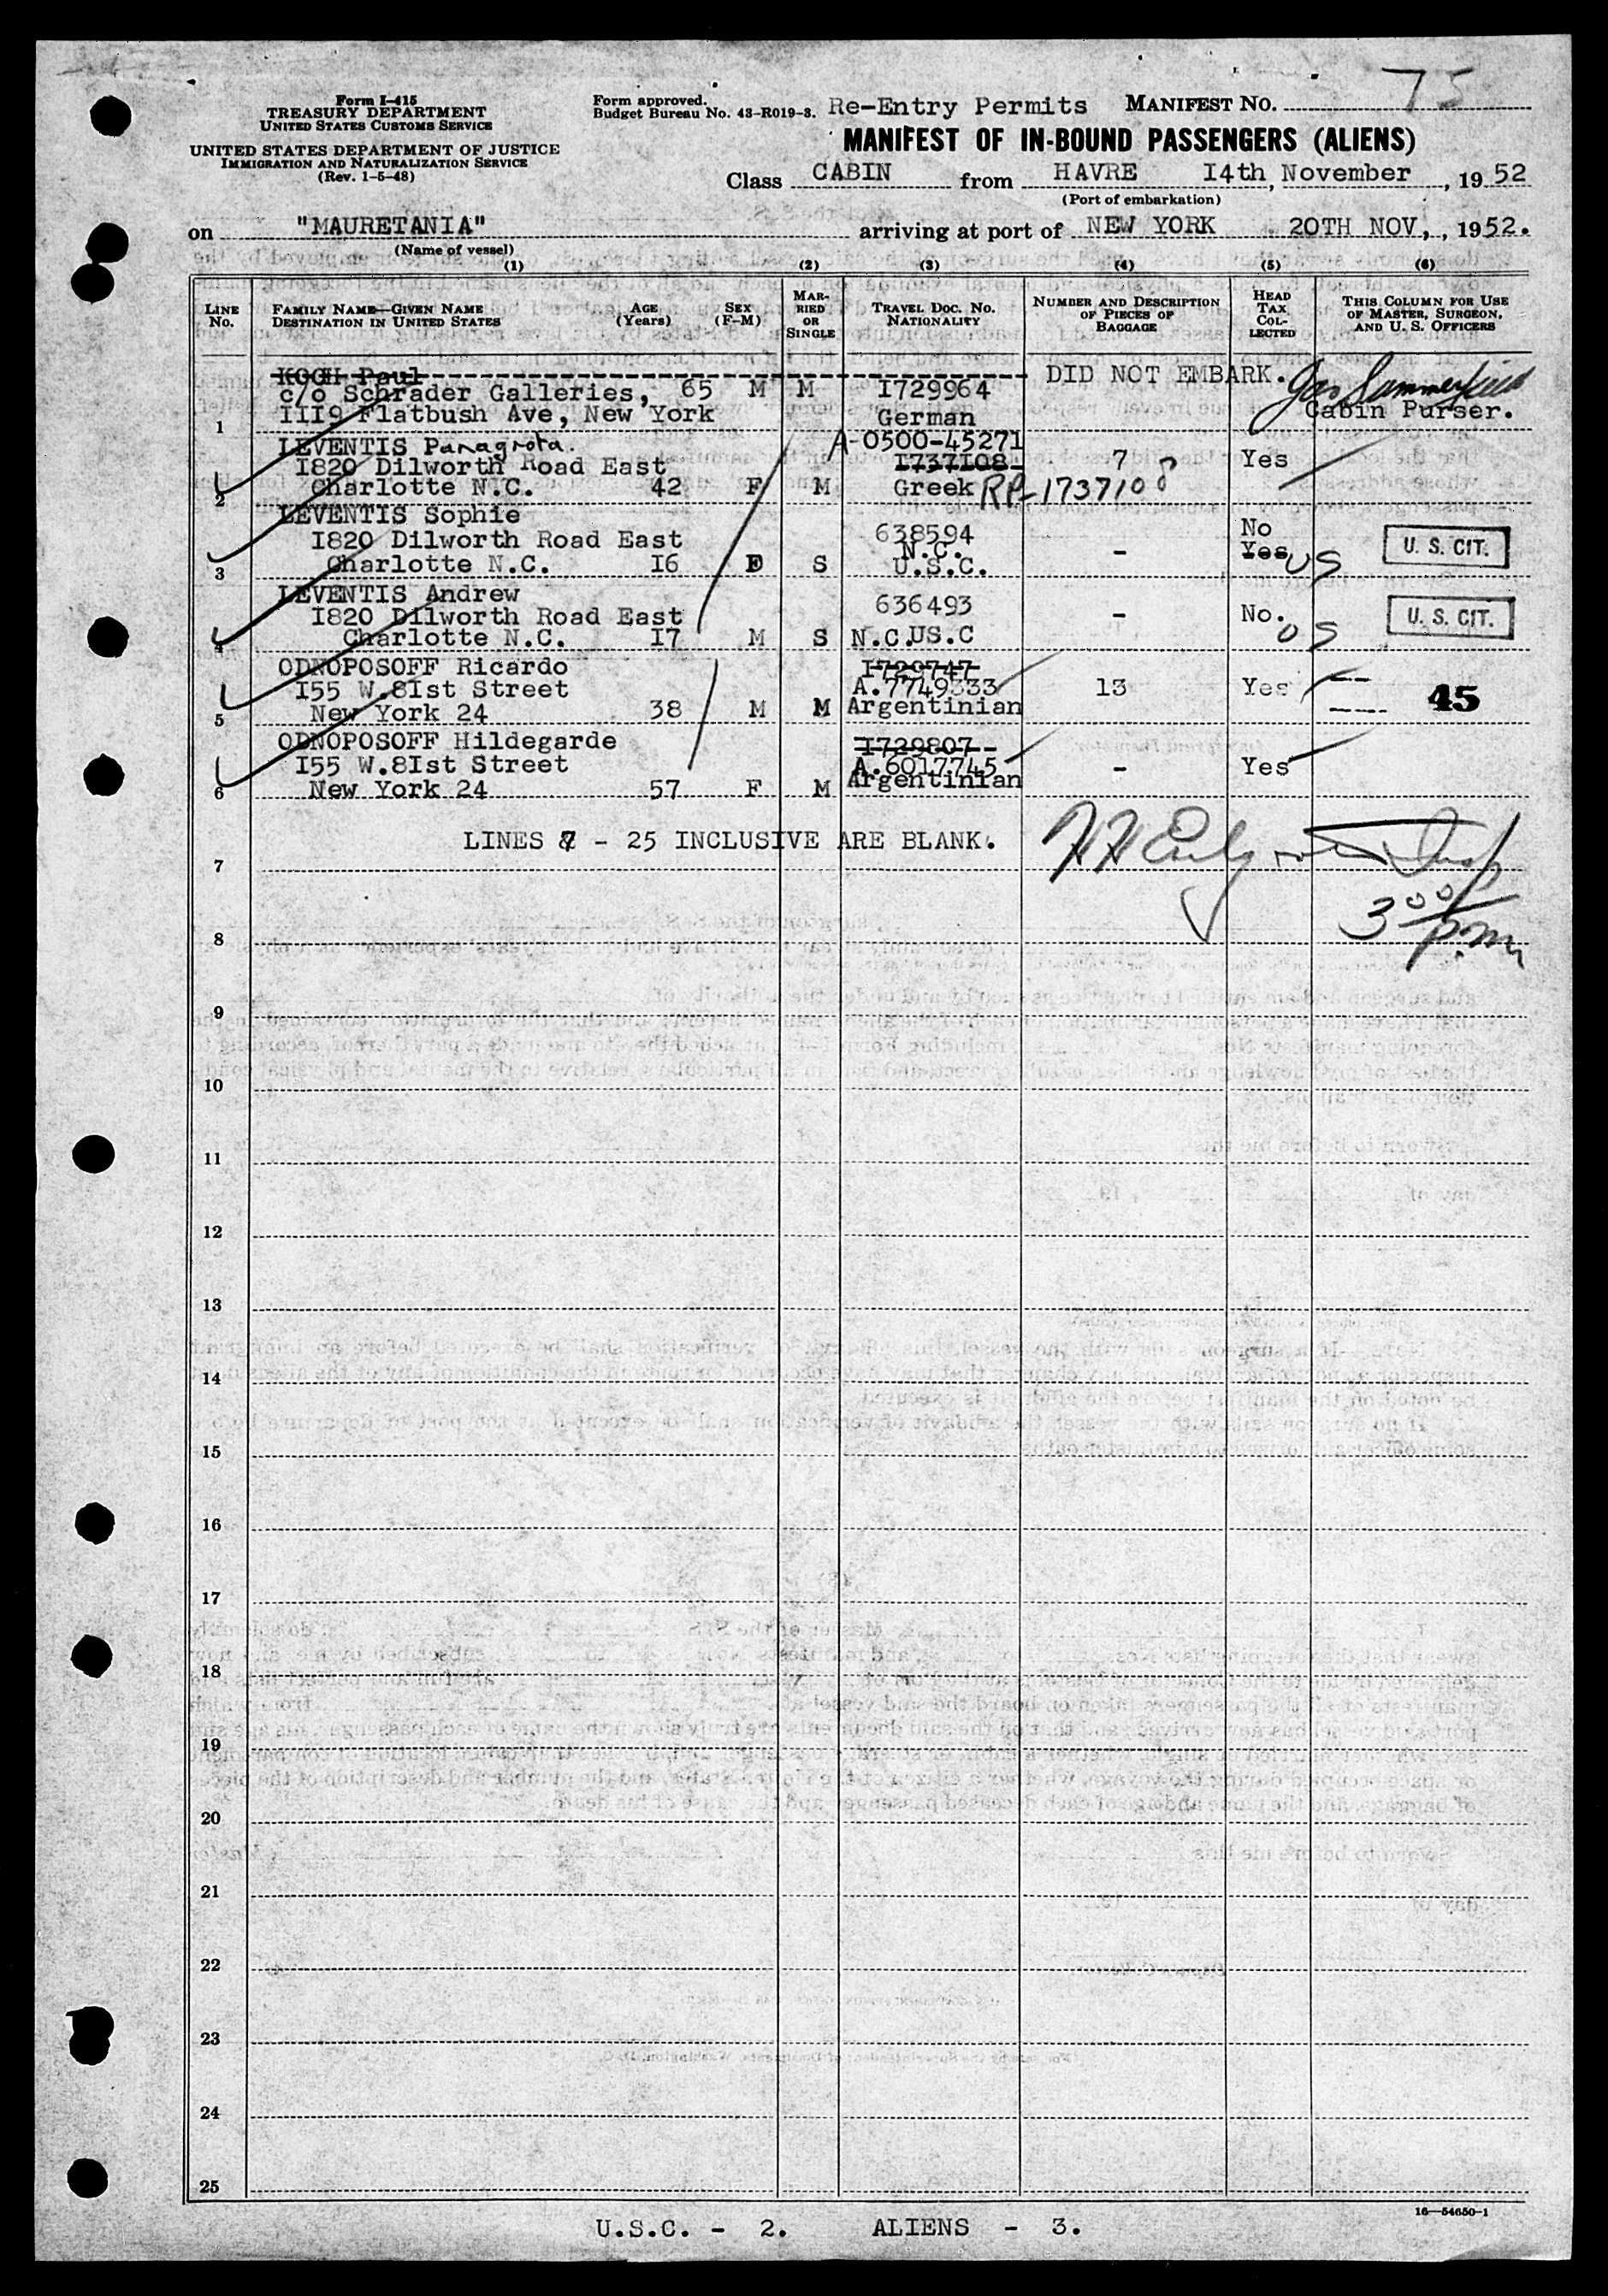 Form I-415
TREASURY DEPARTMENT
UNITED STATES CUSTOMS SERVICE
UNITED STATES DEPARTMENT OF JUSTICE
IMMIGRATION AND NATURALIZATION SERVICE
(Rev. 1-5-48)
Form approved.
Budget Bureau No. 43-R019-3.
Re-Entry Permits MANIFEST No. 75
MANIFEST OF IN-BOUND PASSENGERS (ALIENS)
Class CABIN from HAVRE I4th, November, 1952
(Port of embarkation)
on "MAURETANIA" arriving at port of NEW YORK 20TH NOV,, 1952.
(Name of vessel)
(1) (2) (3) (4) (5) (6)
LINE No. FAMILY NAME—GIVEN NAME DESTINATION IN UNITED STATES AGE (Years) SEX (F-M) MARRIED OR SINGLE TRAVEL DOC. NO. NATIONALITY NUMBER AND DESCRIPTION OF PIECES OF BAGGAGE HEAD TAX COLLECTED THIS COLUMN FOR USE OF MASTER, SURGEON, AND U. S. OFFICERS
KOCH Paul DID NOT EMBARK.
c/o Schrader Galleries, 65 M M I729964
III9 Flatbush Ave, New York German Cabin Purser.
1
LEVENTIS Panagiota. A-0500-45271
I820 Dilworth Road East I737I08 7 Yes
Charlotte N.C. 42 F M Greek RP-1737108
2
LEVENTIS Sophie No
I820 Dilworth Road East 638594 - Yes US U. S. CIT.
N.C.
Charlotte N.C. I6 F S U.S.C.
3
LEVENTIS Andrew 636493
I820 Dilworth Road East - No. US U. S. CIT.
Charlotte N.C. I7 M S N.C. US.C
4
ODNOPOSOFF Ricardo I729747
I55 W.8Ist Street A.7749333 13 Yes 45
New York 24 38 M M Argentinian
5
ODNOPOSOFF Hildegarde I729807
I55 W.8Ist Street A.6017745 - Yes
New York 24 57 F M Argentinian
6
LINES 7 - 25 INCLUSIVE ARE BLANK.
7
3 00 p.m.
8
9
10
11
12
13
14
15
16
17
18
19
20
21
22
23
24
25
16—54650-1
U.S.C. - 2. ALIENS - 3.